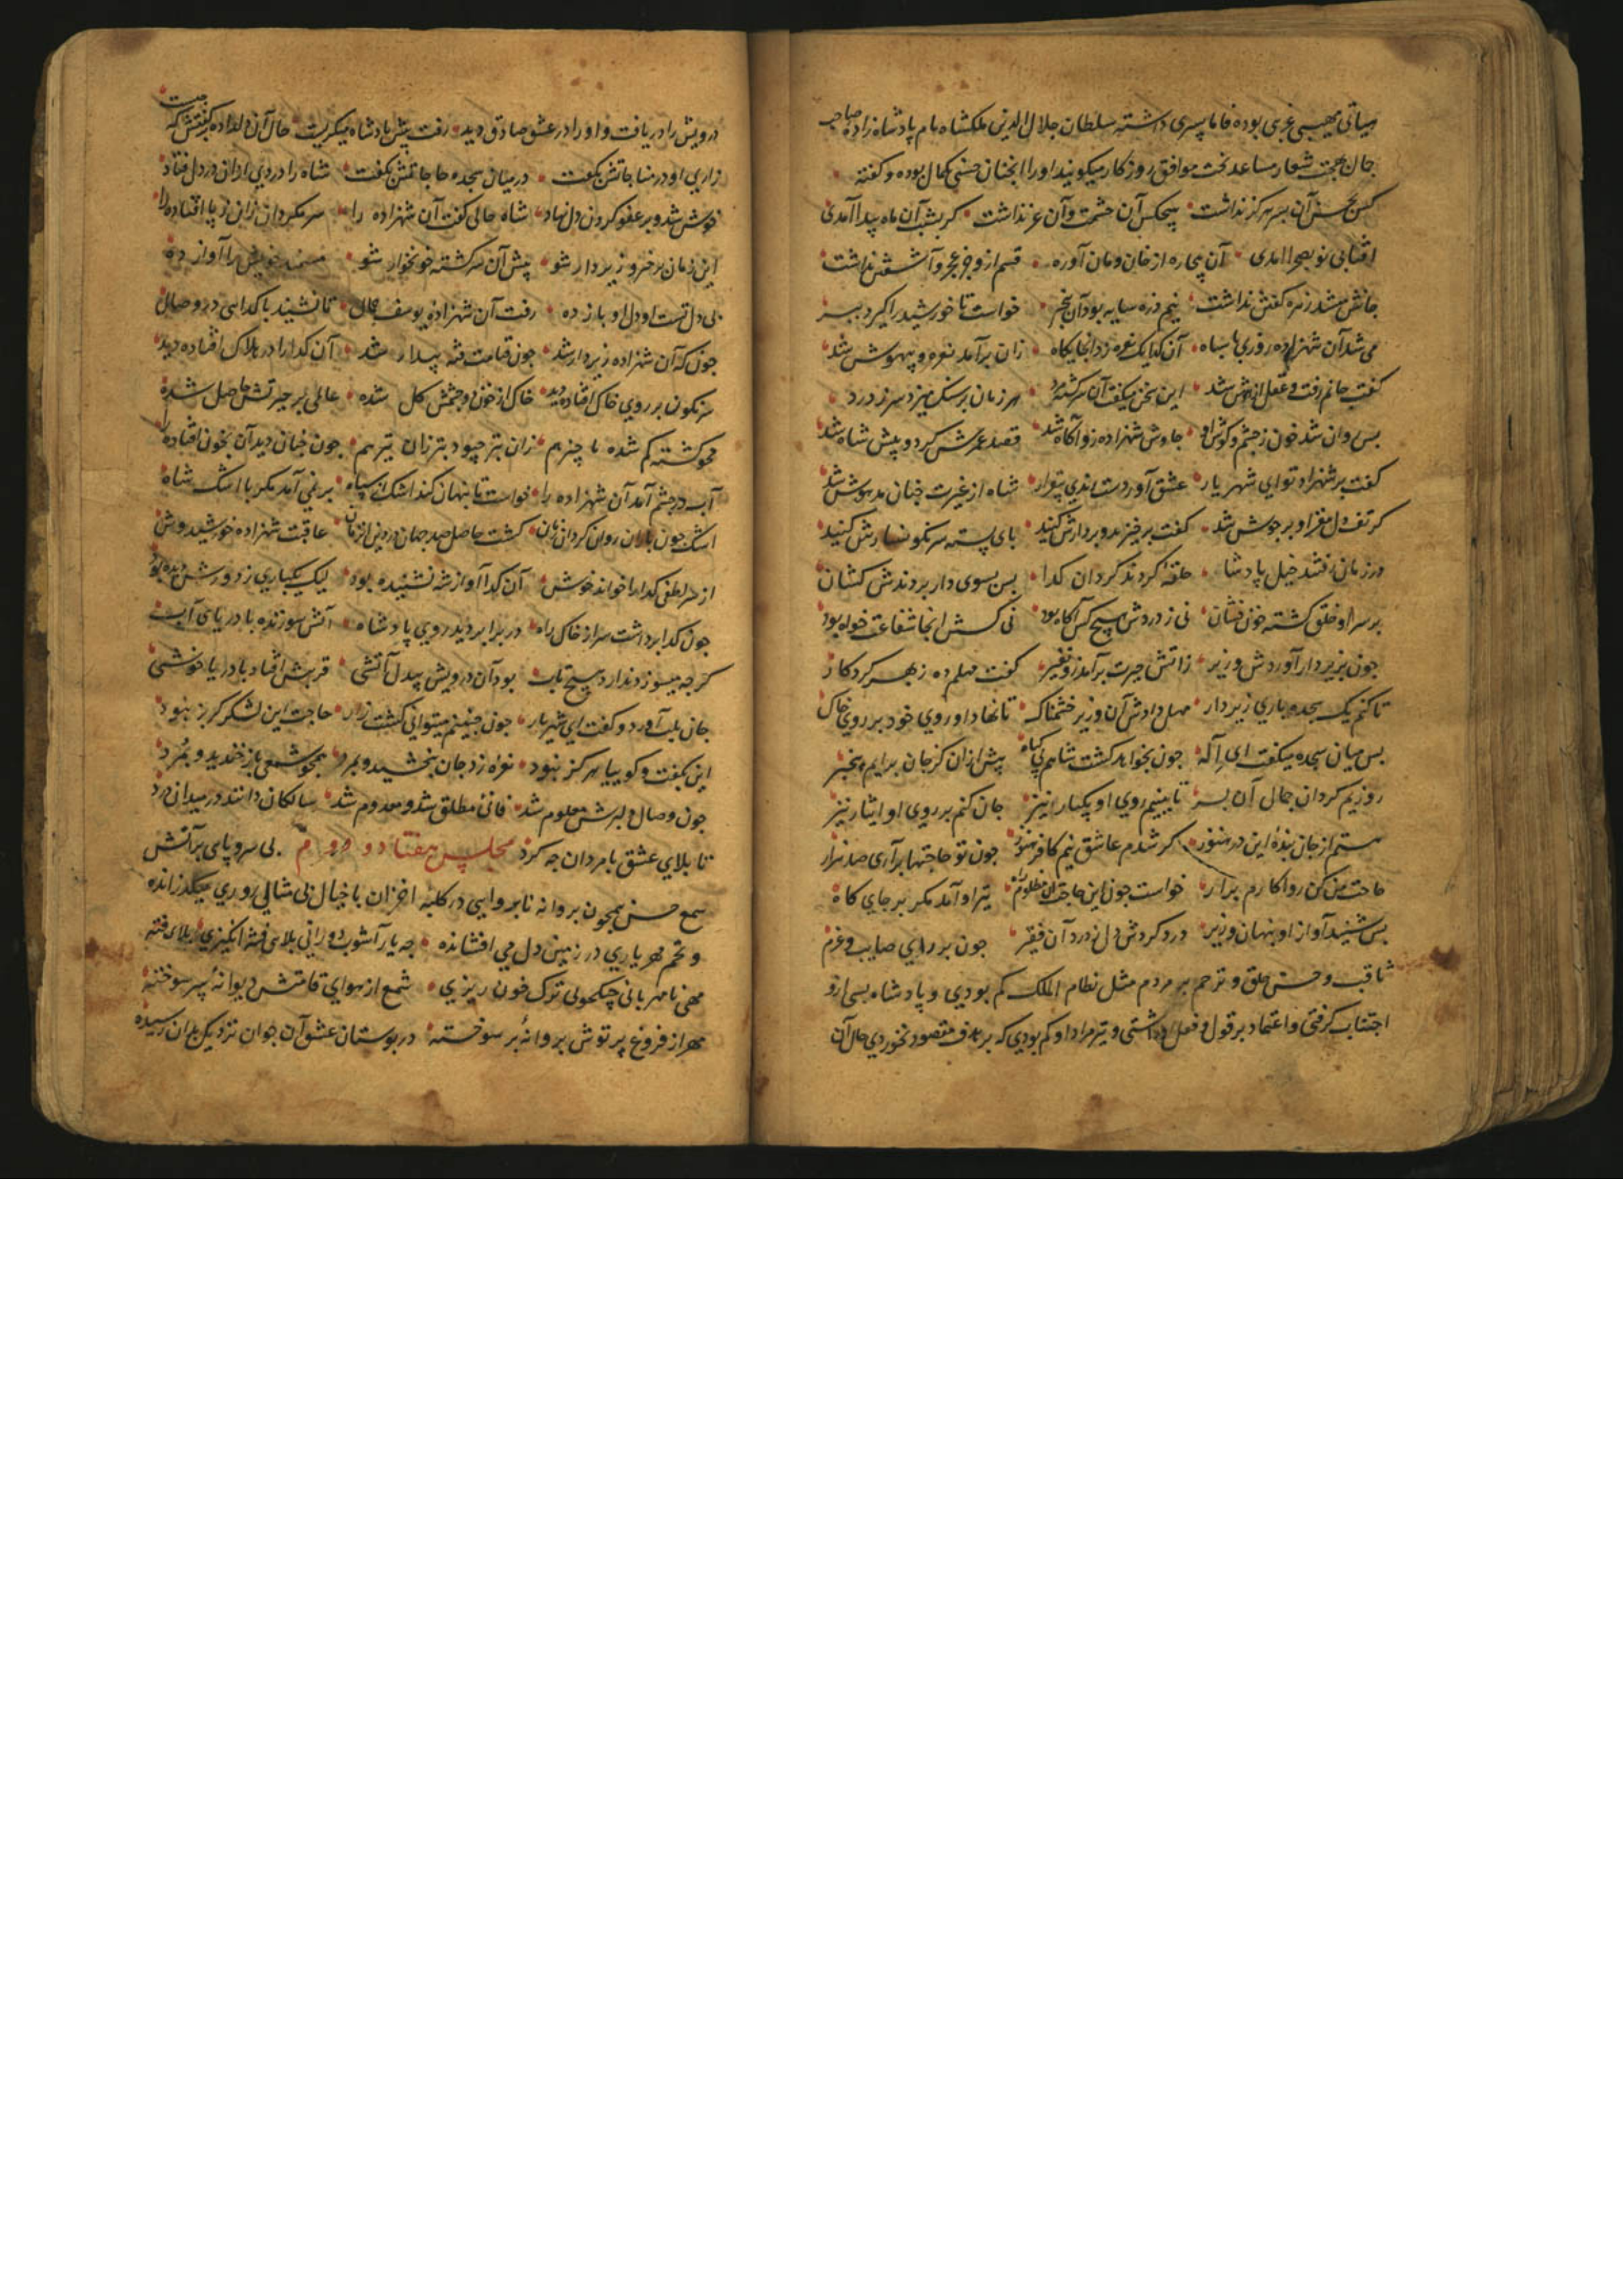 جانی بوده فاما پسری داشته سلطان جلال الدین ملکشاه نام پادشاه زاده صاحب
جمال شعار مساعد بخت موافق روزگار میکویند او را حسنی بکمال بوده و کفته
کس بحسن آن پسر هرکز نداشت هیچکس آن حشمت و آن عز نداشت کر بشب آن ماه پیدا آمدی
افتابی نو بصحرا امدی آن ره از خان و مان آوره قسم از وجز عجز و آشفتن نداشت
جانش میشد زهره کفتن نداشت نیم ذره سایه بود آن بیخبر خواست تا خورشید را کیرد ببر
می شد آن شهزاده روزی با سپاه آن کدا یک نعره زد آنجایکاه زان برآمد نعره و بیهوش شد
کفت جانم رفت و عقل از هوش شد این سخن میکفت آن سرکشته مرد هر زمان بر سنک میزد سر ز درد
بس روان شد خون ز چشم و کوش او جاوش شهزاده زو آکاه شد قصد کرد و پیش شاه شد
کفت بر شهزاده توای شهریار عشق آوردست رندی بیقرار شاه از غیرت چنان مدهوش شد
کز تف دل مغز او بر جوش شد کفت برخیزید و بردارش کنید پای بسته سرنکونسارش کنید
در زمان رفتند خیل پادشا حلقهٔ کردند کرد آن کدا بس بسوی دار بردندش کشان
بر سر او خلق کشته خون فشان نی ز دردش هیچ کس آکاه بود نی کسش آنجا شفاعت خواه بود
جون بزیر دار آوردش وزیر زآتش حیرت برآمد زو نفیر کفت مهلم ده ز بهر کردکار
تا کنم یک سجده باری زیر دار مهل دادش آن وزیر خشمناک تا نهاد او روی خود بر روی خاک
بس میان سجده میکفت ای اله جون بخواهد کشت شاهم بی کناه پیش از آن کز جان برایم بیخبر
روزیم کردان جمال آن پسر تا ببینم روی او یکبار نیز جان کنم بر روی او ایثار نیز
هستم از جان بندهٔ این در هنوز کر شدم عاشق نیم کافر هنوز جون تو حاجتها برآری صد هزار
حاجت من کن روا کارم برار خواست جون این حاجت آن مظلوم تیر او آمد مکر بر جای کاه
بس شنید آواز او پنهان وزیر درد کردش دل ز درد آن فقیر جون بر رای صایب و عزم
ثاقب و حسن خلق و ترحم بر مردم مثل نظام الملک کم بودی و پادشاه بسی ازو
اجتناب کرفتی و اعتماد بر قول و فعل او داشتی و تیر مراد او کم بودی که بر هدف مقصود نخوردی حال آن
درویش را دریافت و او را در عشق صادق دید رفت پیش پادشاه میکریست حال آن دلداده برکفتش که جیست
زاری او در مناجاتش بکفت در میان سجده حاجاتش بکفت شاه را دردی از آن در دل فتاد
خوش شد و بر عفو کردن دل نهاد شاه حالی کفت آن شهزاده را سر مکردان زان ز پا افتاده را
این زمان برخیز و زیر دار شو پیش آن سرکشته خونخوار شو مستمند خویش را آواز ده
بی دل تست او دل او باز ده رفت آن شهزاده یوسف جمال تا نشیند با کدایی در وصال
جون که آن شهزاده زیر دار شد جون قیامت فتنه بیدار شد آن کدا را در هلاک افتاده دید
سرنکون بر روی خاک افتاده دید خاک از خون دو چشمش کل شده عالمی پر حیرتش حاصل شده
محو کشته کم شده ناچیز هم زان بتر چبود بتر زان نیز هم جون چنان دید آن بخون افتاده را
آب در چشم آمد آن شهزاده را خواست تا پنهان کند اشک از سپاه بر نمی آمد مکر با اشک شاه
اشک جون باران روان کرد آن زمان کشت حاصل صد جهان درد آن زمان عاقبت شهزاده خورشید وش
از سر لطفی کدا را خواند خوش آن کدا آواز شه نشنیده بود لیک بسیاری ز دورش دیده بود
جون کدا برداشت سر از خاک راه در برابر دید روی پادشاه آتش سوزنده با دریای آب
کرچه میسوزد ندارد هیچ تاب بود آن درویش بیدل آتشی قربتش افتاد با دریا خوشی
جان بلب آورد و کفت ای شهریار جون چنینم میتوانی کشت زار حاجت این لشکر کربز نبود
این بکفت و کوییا هرکز نبود نعره زد جان ببخشید و بمرد همجو شمعی باز خندید و بمرد
جون وصال دلبرش معلوم شد فانی مطلق شد و معدوم شد سالکان دانند در میدان درد
تا بلای عشق با مردان جه کرد مجلس هفتاد و دوم بی سر و پای بر آتش
شمع حسن همجون پروانه نابروایی در کلبه احزان با خیال بی مثالی روزی میکذرانده
و تخم مهر یاری در زمین دل می افشانده جه یار آشوب دورانی بلای فتنه انکیزی بلای فتنه
مهی نامهربانی ترک خون ریزی شمع از هوای قامتش دیوانهٔ پر سوخته
مهر از فروغ پرتوش پروانهٔ پر سوخته در بوستان عشق آن جوان نزدیک بدان رسیده